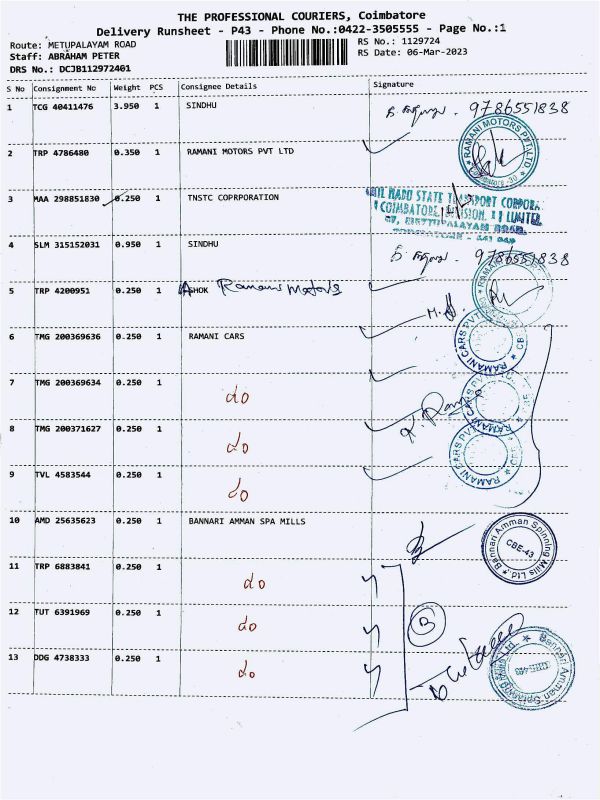 THE PROFESSIONAL COURIERS, Coimbatore
Delivery Runsheet - P43 - Phone No.:0422-3505555 - Page No.:1
Route: METUPALAYAM ROAD
RS No.: 1129724
Staff: ABRAHAM PETER
RS Date: 06-Mar-2023
DRS No.: DCJB112972401
S No Consignment No Weight PCS Consignee Details Signature
1 TCG 40411476 3.950 1 SINDHU 9786551838
RAMANI MOTORS PVT LTD
2 TRP 4786480 0.350 1 RAMANI MOTORS PVT LTD
3 MAA 298851830 0.250 1 TNSTC COPRPORATION
TAMIL NADU STATE TRANSPORT CORPORA
COIMBATORE DIVISION II LIMITED
37, METTUPALAYAM ROAD,
4 SLM 315152031 0.950 1 SINDHU 9786551838
5 TRP 4200951 0.250 1 ASHOK Ramani Motors
6 TMG 200369636 0.250 1 RAMANI CARS
RAMANI CARS PVT CBE
7 TMG 200369634 0.250 1 do
8 TMG 200371627 0.250 1 do
RAMANI CARS PVT
9 TVL 4583544 0.250 1 do
10 AMD 25635623 0.250 1 BANNARI AMMAN SPA MILLS
Bannari Amman Spinning Mills Ltd., CBE-43
11 TRP 6883841 0.250 1 do
12 TUT 6391969 0.250 1 do
13 DDG 4738333 0.250 1 do
Bannari Amman Spinning